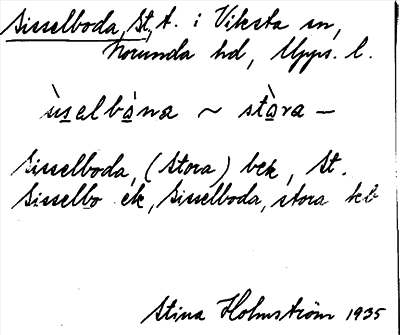 Sisselboda, St, t. i Viksta sn,
Norunda hd, Upps. l.
ùselbàna ~ stàra —
Sisselboda, (Stora) bek, St.
Sisselbo ek, Sisselboda, stora kb
Stina Holmström 1935